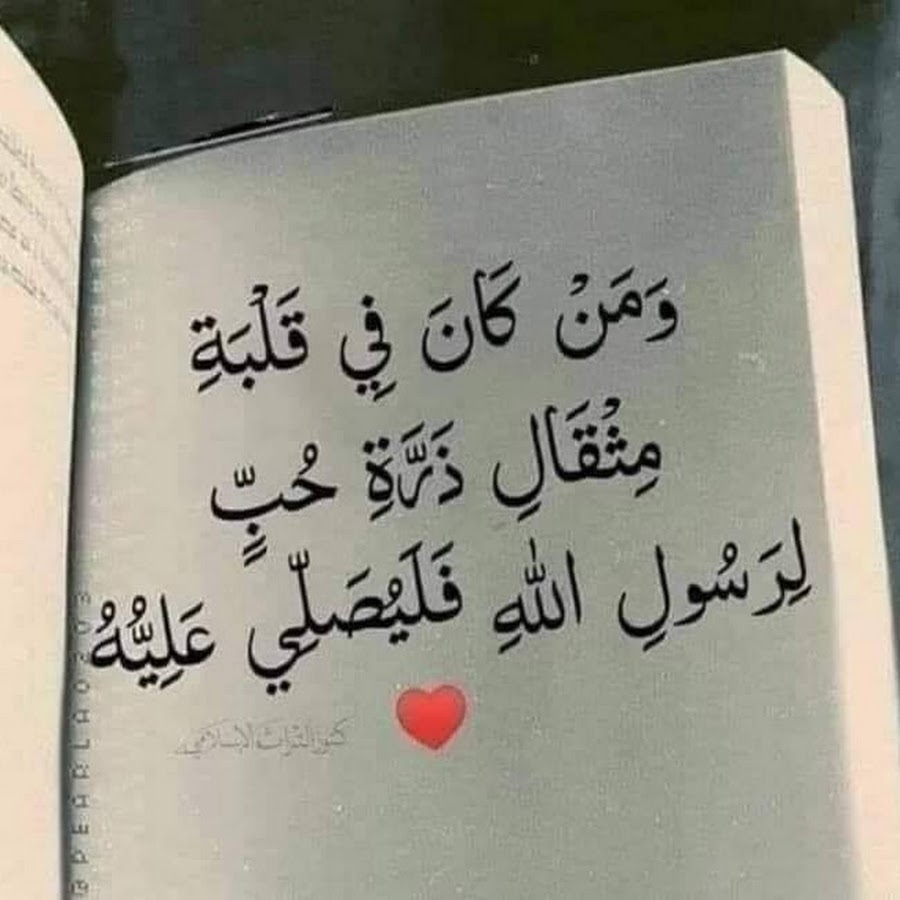 وَمَنْ كَانَ فِي قَلْبَةِ
مِثْقَالِ ذَرَّةِ حُبٍّ
لِرَسُولِ اللهِ فَلَيُصَلِّي عَلِيُّهُ
❤
كنوز التراث الإسلامي